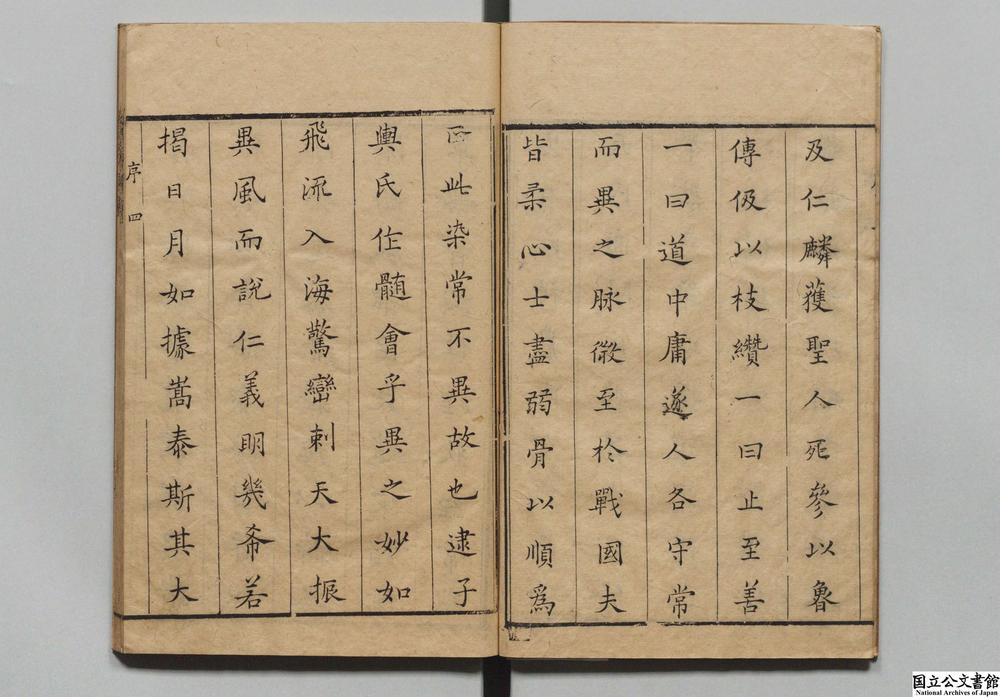 及仁麟獲聖人死參以魯
傳伋以枝纘一曰止至善
一曰道中庸遂人各守常
而異之脉微至於戰國夫
皆柔心士盡弱骨以順爲
此染常不異故也逮子
輿氏仕髓會乎異之妙如
飛流入海驚巒刺天大振
異風而說仁義明幾希若
揭日月如據嵩泰斯其大
序 四
国立公文書館
National Archives of Japan